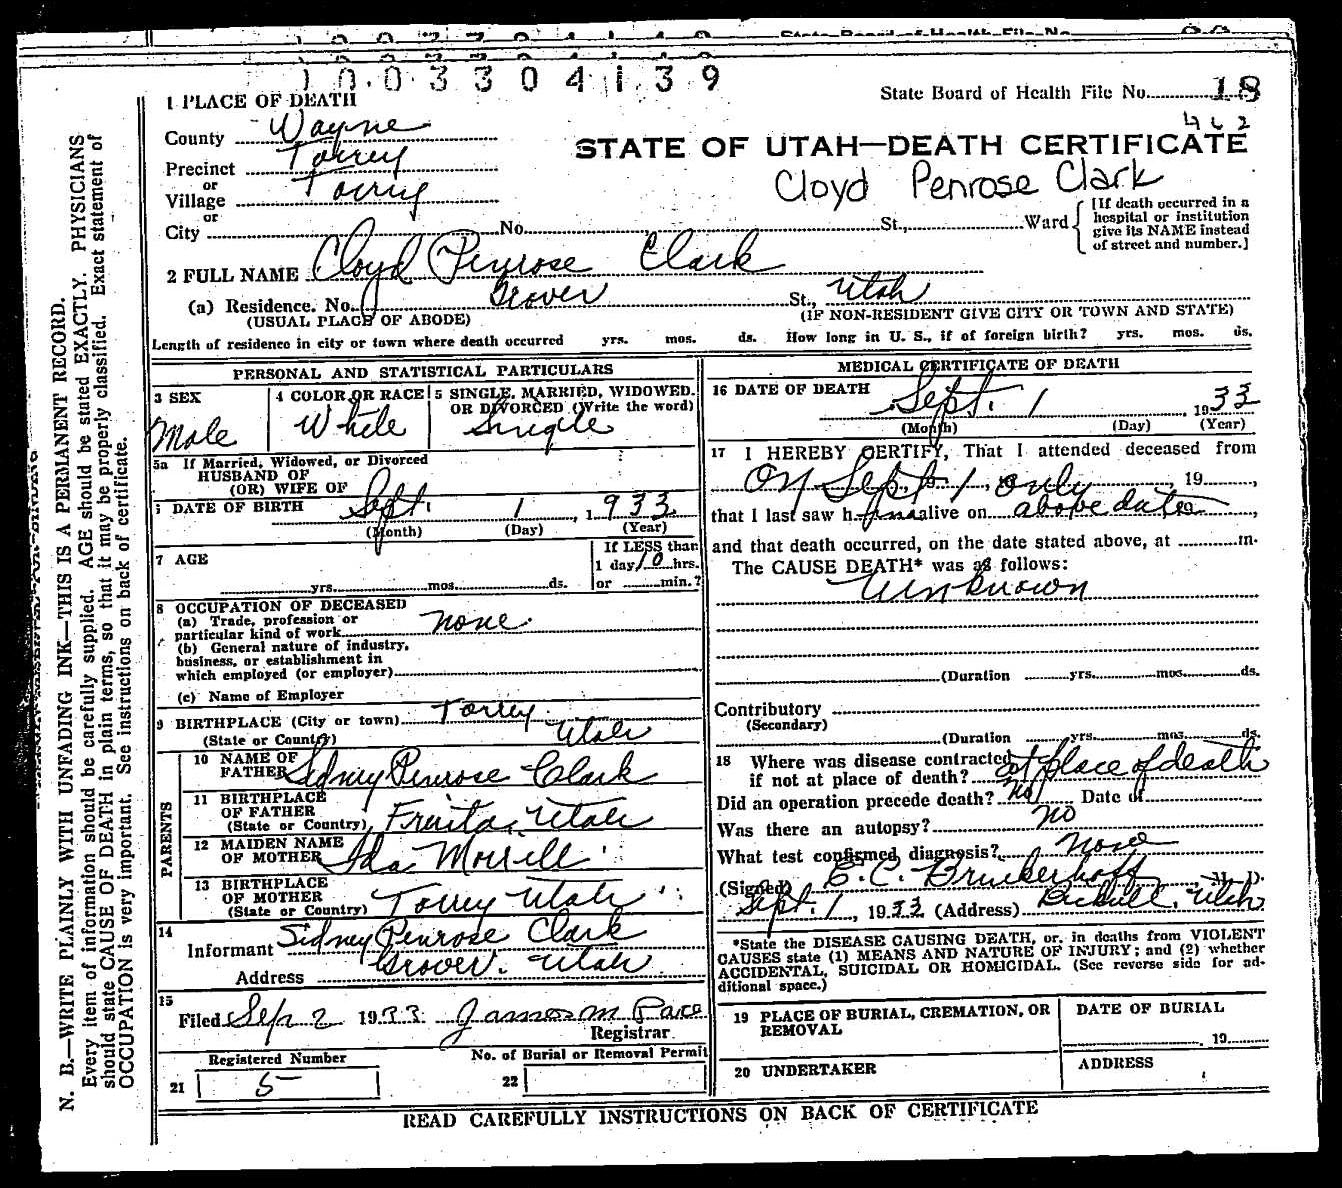 1003304139
State Board of Health File No. 18
462
1 PLACE OF DEATH
County Wayne
STATE OF UTAH—DEATH CERTIFICATE
Precinct Torrey
Cloyd Penrose Clark
or
Village Torrey
or
City No. St., Ward
[If death occurred in a
hospital or institution
give its NAME instead
of street and number.]
2 FULL NAME Cloyd Penrose Clark
(a) Residence. No. Grover St., Utah
(USUAL PLACE OF ABODE) (IF NON-RESIDENT GIVE CITY OR TOWN AND STATE)
Length of residence in city or town where death occurred yrs. mos. ds. How long in U. S., if of foreign birth? yrs. mos. ds.
PERSONAL AND STATISTICAL PARTICULARS
3 SEX
Male
4 COLOR OR RACE
White
5 SINGLE, MARRIED, WIDOWED,
OR DIVORCED (Write the word)
Single
5a If Married, Widowed, or Divorced
HUSBAND OF
(OR) WIFE OF
6 DATE OF BIRTH Sept. 1, 1933
(Month) (Day) (Year)
7 AGE
yrs. mos. ds.
If LESS than
1 day 10 hrs.
or min.?
8 OCCUPATION OF DECEASED
(a) Trade, profession or
particular kind of work none
(b) General nature of industry,
business, or establishment in
which employed (or employer)
(c) Name of Employer
9 BIRTHPLACE (City or town) Torrey
(State or Country) Utah
PARENTS
10 NAME OF
FATHER Sidney Penrose Clark
11 BIRTHPLACE
OF FATHER
(State or Country) Fruita, Utah
12 MAIDEN NAME
OF MOTHER Ida Morrill
13 BIRTHPLACE
OF MOTHER
(State or Country) Torrey Utah
14
Informant Sidney Penrose Clark
Address Grover, Utah
15
Filed Sep 2 1933 James M Pace
Registrar
Registered Number
21 5
No. of Burial or Removal Permit
22
MEDICAL CERTIFICATE OF DEATH
16 DATE OF DEATH
Sept. 1 1933
(Month) (Day) (Year)
17 I HEREBY CERTIFY, That I attended deceased from
On Sept 1 only, 19
that I last saw h alive on above date 19
and that death occurred, on the date stated above, at m.
The CAUSE DEATH* was as follows:
Unknown
(Duration yrs. mos. ds.
Contributory
(Secondary)
(Duration yrs. mos. ds.
18 Where was disease contracted
if not at place of death? at place of death
Did an operation precede death? no Date of
Was there an autopsy? no
What test confirmed diagnosis? none
(Signed) E.C. Brinkerhoff M. D.
Sept. 1, 1933 (Address) Bicknell, Utah
*State the DISEASE CAUSING DEATH, or, in deaths from VIOLENT
CAUSES state (1) MEANS AND NATURE OF INJURY; and (2) whether
ACCIDENTAL, SUICIDAL OR HOMICIDAL. (See reverse side for ad-
ditional space.)
19 PLACE OF BURIAL, CREMATION, OR
REMOVAL
DATE OF BURIAL
19
20 UNDERTAKER
ADDRESS
READ CAREFULLY INSTRUCTIONS ON BACK OF CERTIFICATE
N. B.—WRITE PLAINLY WITH UNFADING INK—THIS IS A PERMANENT RECORD.
Every item of information should be carefully supplied. AGE should be stated EXACTLY. PHYSICIANS
should state CAUSE OF DEATH in plain terms, so that it may be properly classified. Exact statement of
OCCUPATION is very important. See instructions on back of certificate.